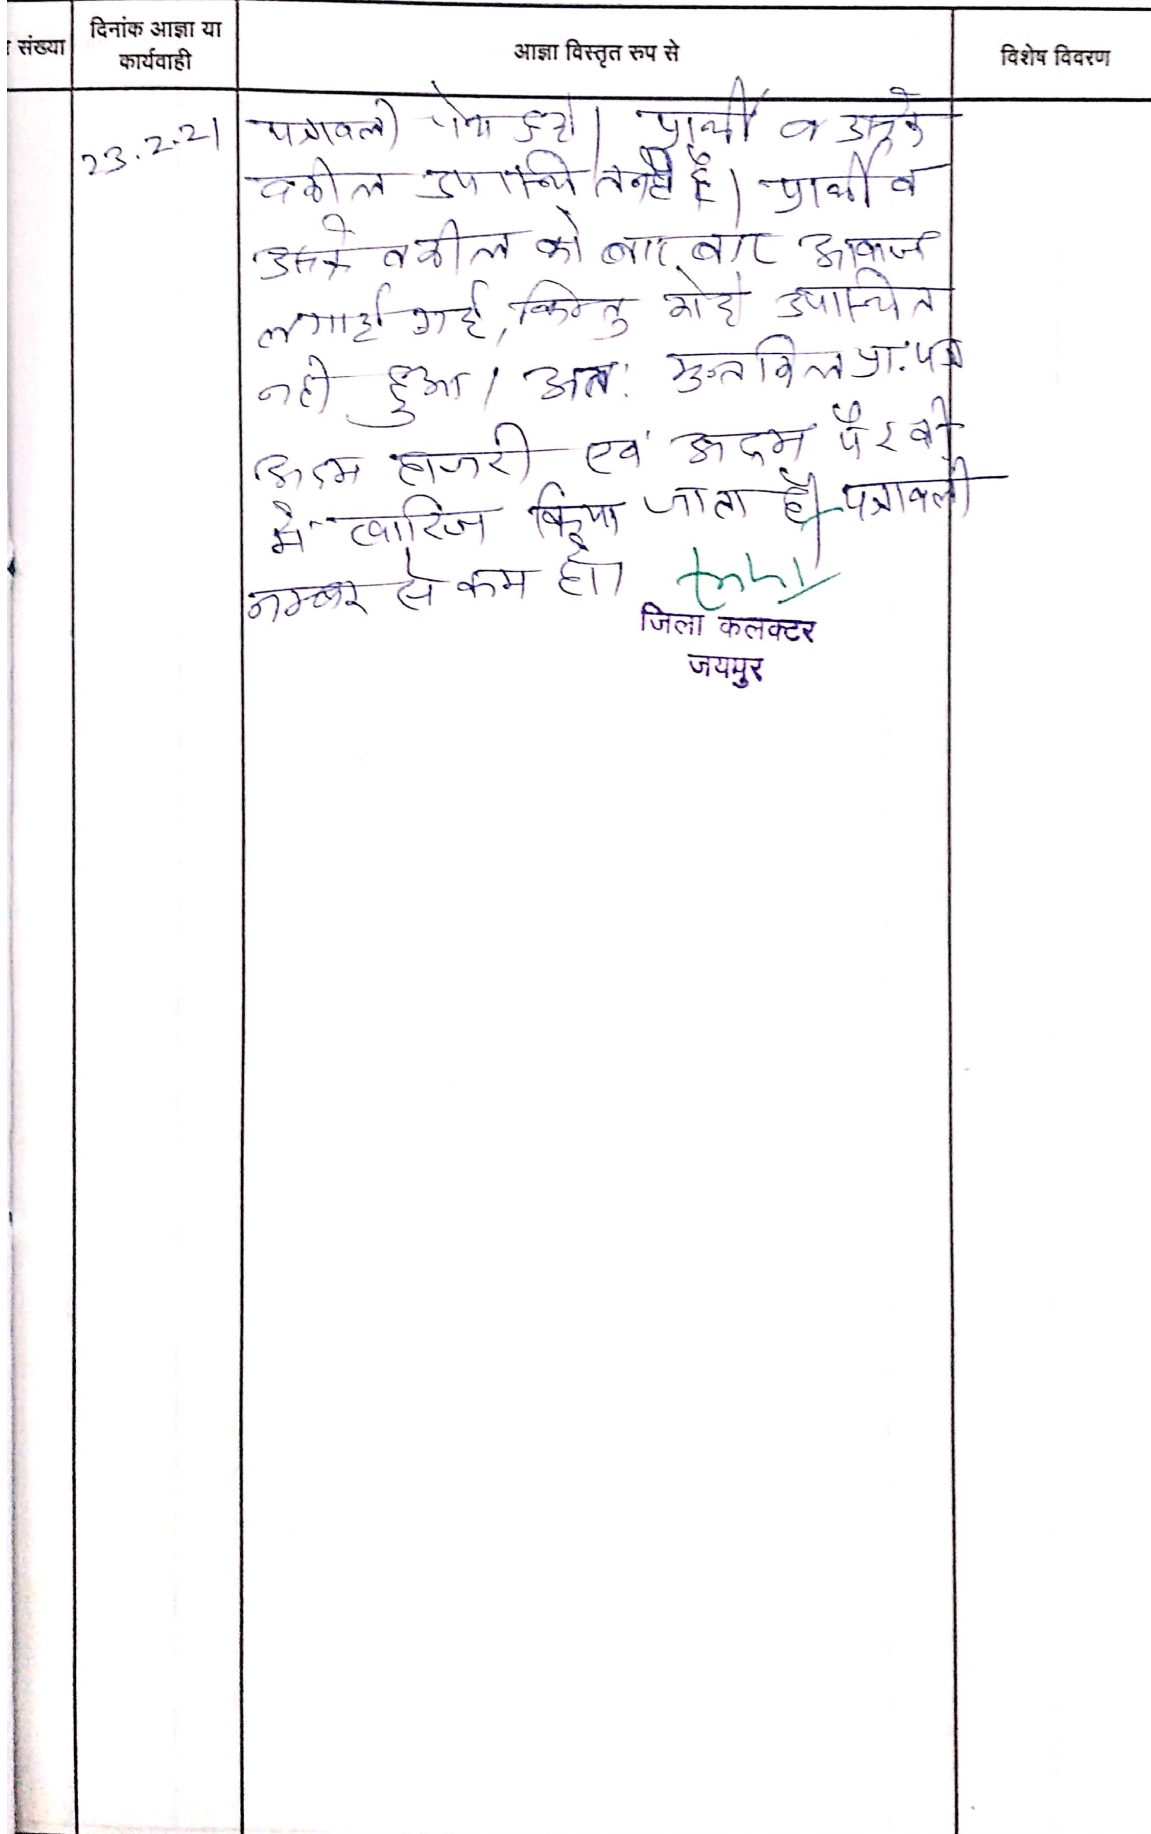 संख्या
दिनांक आज्ञा या
कार्यवाही
आज्ञा विस्तृत रुप से
विशेष विवरण
23.2.21
पत्रावली पेश हुयी। प्रार्थी व उसके
वकील उपस्थित नही है। प्रार्थी व
उसके वकील को बार बार आवाज
लगाई गई, किन्तु कोई उपस्थित
नही हुआ। अतः मुन्तकिल प्रा. पत्र
अदम हाजरी एवं अदम पैरवी
में खारिज किया जाता है। पत्रावली
नम्बर से कम हो।
जिला कलक्टर
जयपुर